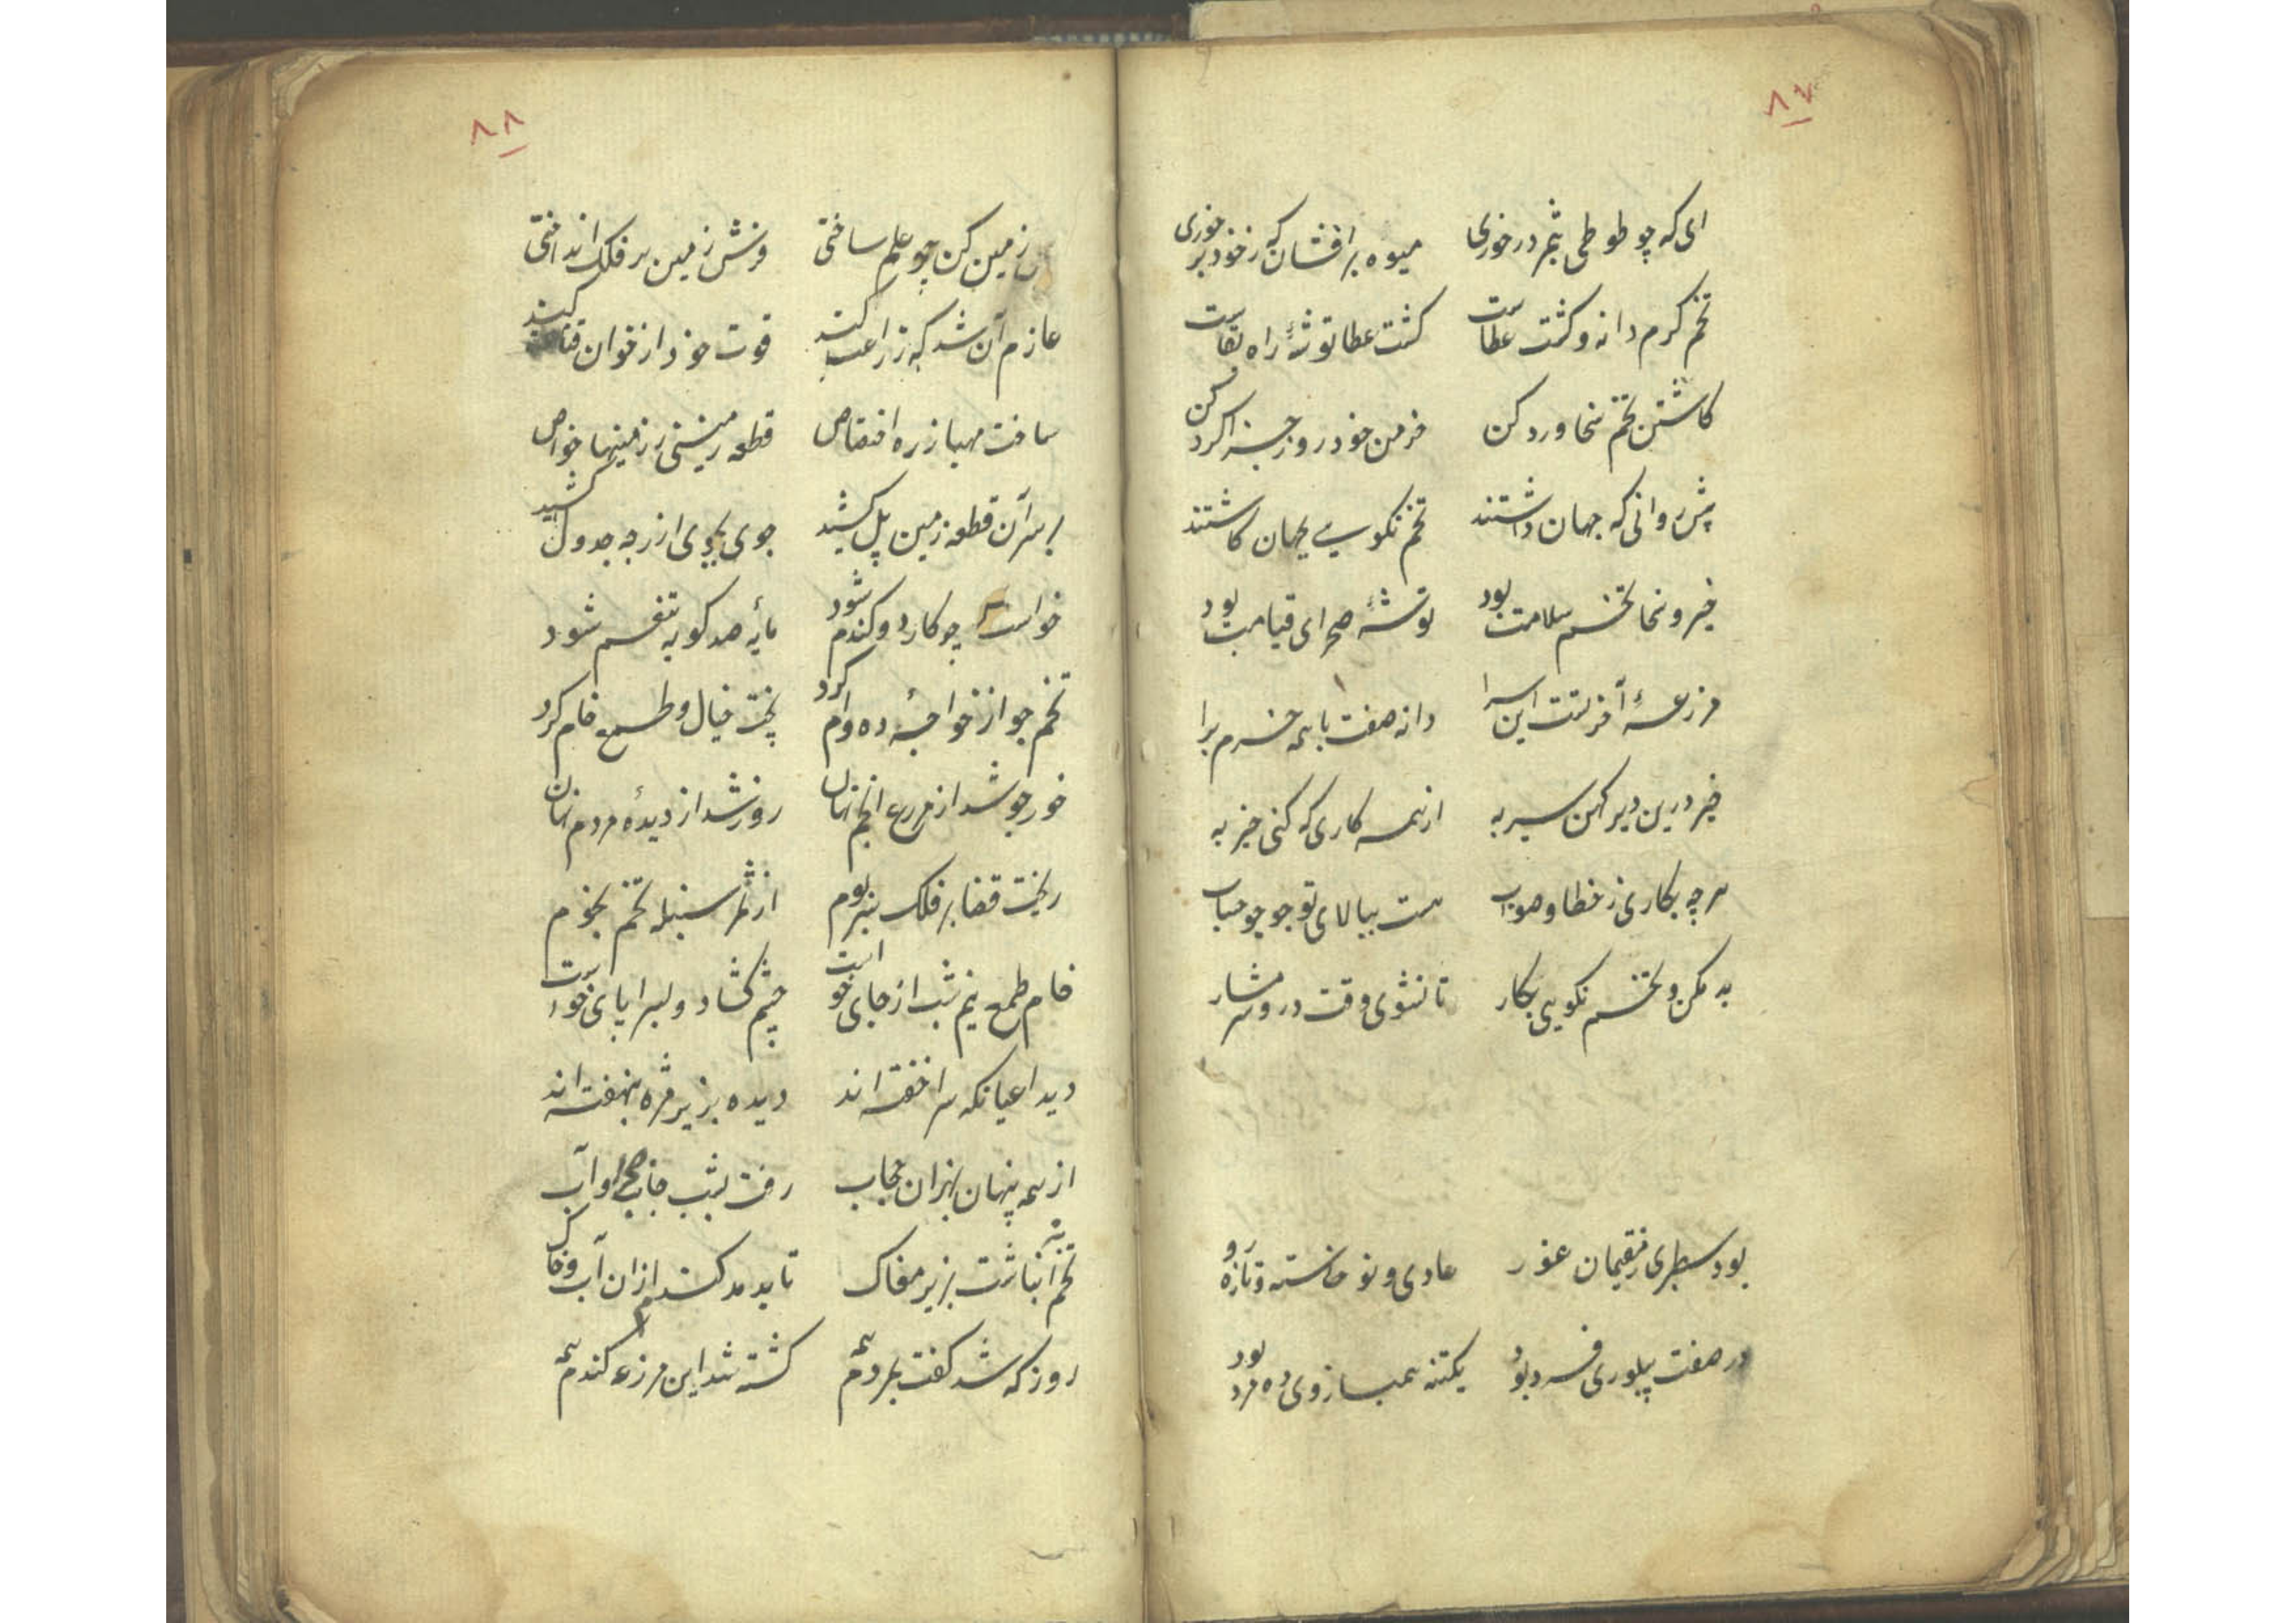 ۸۷
ای که چو طوطی بثمر در خوری میوه برافشان که ز خود برخوری
تخم کرم دانه و کشت عطاست کشت عطا توشهٔ راه بقاست
کاشتن تخم سخا ورد کن خرمن خود روز جزا کرد کن
پیش روانی که جهان داشتند تخم نکویی بجهان کاشتند
خیر و سخا تخم سلامت بود توشهٔ صحرای قیامت بود
مزرعهٔ آخرتست این سرا دانه صفت با همه خرم برا
خیر درین دیر کهن سیر به از همه کاری که کنی خیر به
هر چه بکاری ز خطا و صواب هست ببالای تو جو جو حساب
بد مکن و تخم نکویی بکار تا نشوی وقت درو شرمسار
بود سطبری ز مقیمان غور عادی و نوخاسته و تازه رو
در صفت پیلوری فرد بود یکتنه همبازوی ده مرد بود
۸۸
زمین کن چو علم ساختی فرش زمین بر فلک انداختی
عازم آن شد که زراعت کند قوت خود از خوان قناعت کند
ساخت مهیا ز ره اختصاص قطعه زمینی ز زمینهای خاص
بر سر آن قطعه زمین پل کشید جوی بجوی از رجه جدول کشید
خواست چو کارد و کندم شود مایهٔ صد کو به تنعم شود
تخم جو از خواجهٔ ده وام کرد پخت خیال و طمع خام کرد
خور چو شد از مزرع انجم نهان روز شد از دیدهٔ مردم نهان
ریخت قضا بر فلک سبز بوم از ثمر سنبله تخم نجوم
خام طمع نیم شب از جای خواست چشم کشاد و سراپای خواست
دید اعیانکه سرا خفته اند دیده بزیر مژه بنهفته اند
از همه پنهان بهزاران حجاب رفت بشب جانب صحرا و آب
تخم بینباشت بزیر مغاک تا بدمد کندم از آن آب و خاک
روز که شد کفت بمردم همه کشته شد این مزرعه کندم همه